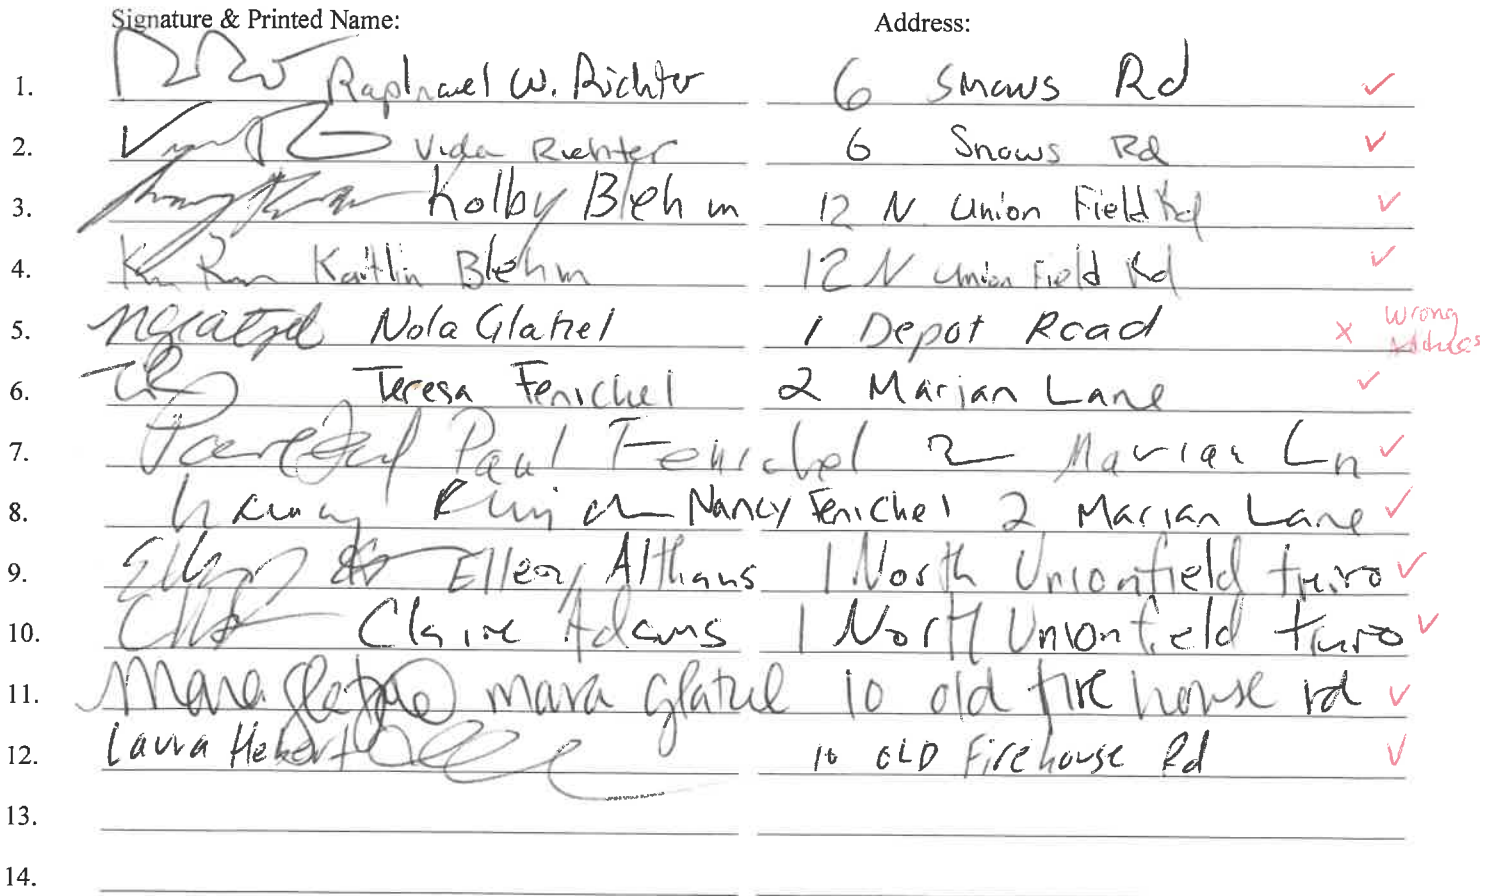 Signature & Printed Name: Address:
1. Raphael W. Richter 6 Snows Rd ✓
2. Vida Richter 6 Snows Rd ✓
3. Kolby Blehm 12 N. Union Field Rd ✓
4. Kaitlin Blehm 12 N Union Field Rd ✓
5. Nola Glatzel 1 Depot Road x Wrong Address
6. Teresa Fenichel 2 Marian Lane ✓
7. Paul Fenichel 2 Marian Ln ✓
8. Nancy Fenichel 2 Marian Lane ✓
9. Ellery Althaus 1 North Unionfield truro ✓
10. Claire Adams 1 North Unionfield truro ✓
11. Mara Glatzel mara glatzel 10 old fire house rd ✓
12. Laura Hebert 10 OLD Firehouse Rd ✓
13.
14.